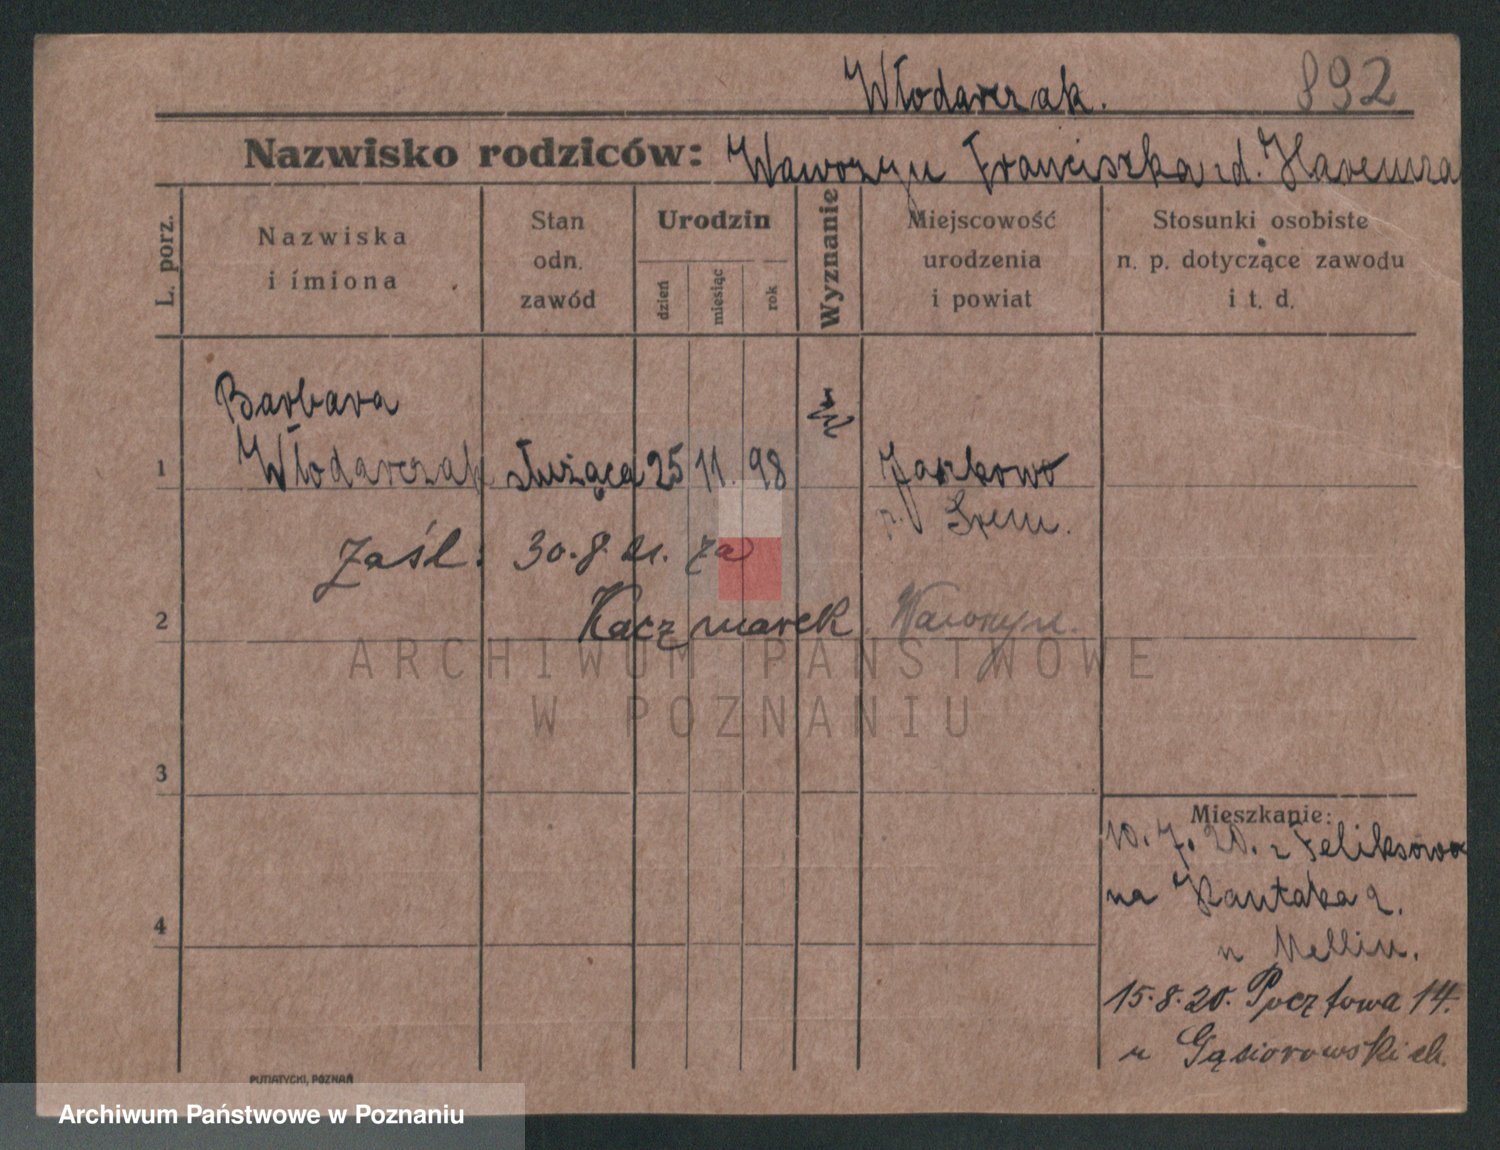 Włodarczak. 892
Nazwisko rodziców: Wawrzyn Franciszka z d.
L. porz.
Nazwiska
i imiona
Stan
odn.
zawód
Urodzin
dzień
miesiąc
rok
Wyznanie
Miejscowość
urodzenia
i powiat
Stosunki osobiste
n. p. dotyczące zawodu
i t. d.
Barbara
1 Włodarczak służąca 25 11. 98 Jaszkowo
p. Śrem.
Zaśl: 30.8.21. za
2 Kaczmarek Wawrzyn.
ARCHIWUM PAŃSTWOWE
W POZNANIU
3
Mieszkanie:
10.7.20. z Feliksowa
na Kantaka 2.
4
u Mellin.
15.8.20. Pocztowa 14.
u Gąsiorowskich.
PUTIATYCKI, POZNAŃ
Archiwum Państwowe w Poznaniu